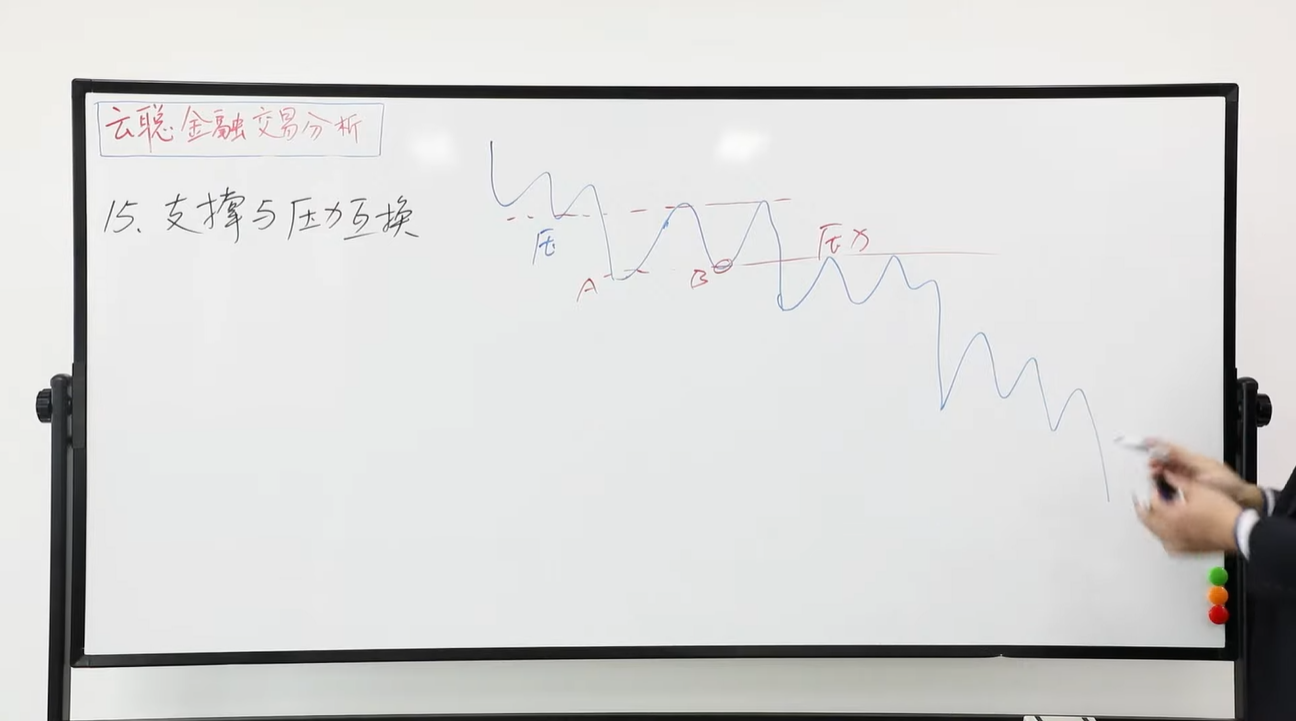 云聪金融交易分析
15、支撑与压力互换
压力
压
A
B